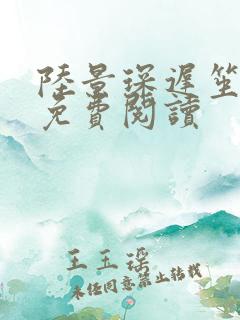 陸景琛遲笙
免費閱讀
王玉瑶
未经同意禁止转载